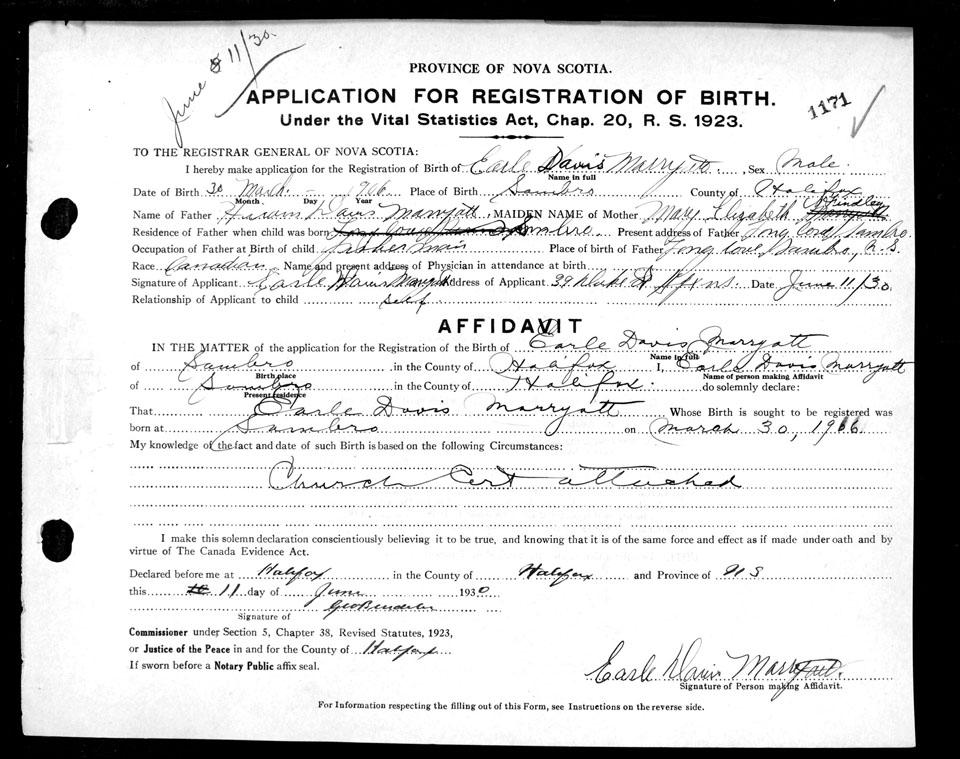 June 11/30
PROVINCE OF NOVA SCOTIA.
APPLICATION FOR REGISTRATION OF BIRTH.
1171
Under the Vital Statistics Act, Chap. 20, R. S. 1923.
TO THE REGISTRAR GENERAL OF NOVA SCOTIA:
I hereby make application for the Registration of Birth of Earle Davis Marryatt Sex Male.
Name in full
Date of Birth 30 March 1906 Place of Birth Sambro County of Halifax
Month. Day Year
Findley
Name of Father Davis Marryatt, MAIDEN NAME of Mother Mary Elizabeth
Residence of Father when child was born Sambro. Present address of Father Long Cove, Sambro.
Occupation of Father at Birth of child fisherman Place of birth of Father Long Cove, Sambro, N.S.
Race Canadian Name and present address of Physician in attendance at birth
Signature of Applicant Earle Davis Marryatt Address of Applicant 39 St. Date June 11/30
Relationship of Applicant to child Self
AFFIDAVIT
IN THE MATTER of the application for the Registration of the Birth of Earle Davis Marryatt
Name in full
of Sambro in the County of Halifax I, Earle Davis Marryatt
Birth place Name of person making Affidavit
of Sambro in the County of Halifax. do solemnly declare:
Present residence
That Earle Davis Marryatt Whose Birth is sought to be registered was
born at Sambro on March 30, 1906.
My knowledge of the fact and date of such Birth is based on the following Circumstances:
Church Cert attached
I make this solemn declaration conscientiously believing it to be true, and knowing that it is of the same force and effect as if made under oath and by
virtue of The Canada Evidence Act.
Declared before me at Halifax in the County of Halifax and Province of N S
this 11 day of June 1930
Signature of
Commissioner under Section 5, Chapter 38, Revised Statutes, 1923,
or Justice of the Peace in and for the County of Halifax
If sworn before a Notary Public affix seal.
Earle Davis Marryatt.
Signature of Person making Affidavit.
For Information respecting the filling out of this Form, see Instructions on the reverse side.